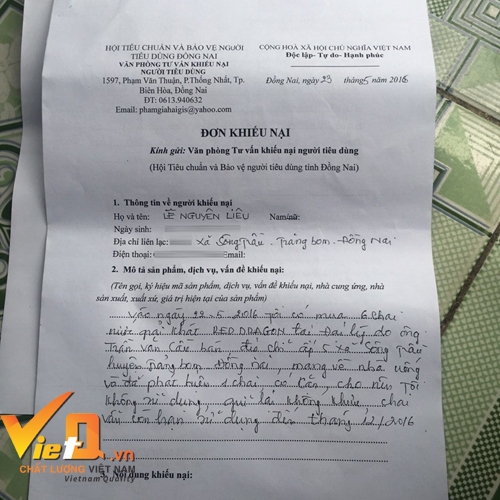 HỘI TIÊU CHUẨN VÀ BẢO VỆ NGƯỜI
TIÊU DÙNG ĐỒNG NAI
VĂN PHÒNG TƯ VẤN KHIẾU NẠI
NGƯỜI TIÊU DÙNG
1597, Phạm Văn Thuận, P.Thống Nhất, Tp.
Biên Hòa, Đồng Nai
ĐT: 0613.940632
Email: phamgiahaigis@yahoo.com
CỘNG HOÀ XÃ HỘI CHỦ NGHĨA VIỆT NAM
Độc lập- Tự do- Hạnh phúc
Đồng Nai, ngày 23 tháng 5 năm 2016
ĐƠN KHIẾU NẠI
Kính gửi: Văn phòng Tư vấn khiếu nại người tiêu dùng
(Hội Tiêu chuẩn và Bảo vệ người tiêu dùng tỉnh Đồng Nai)
1. Thông tin về người khiếu nại
Họ và tên: LÊ NGUYÊN LIÊU Nam/nữ:
Ngày sinh:
Địa chỉ liên lạc: xã Sông Trầu . Trảng bom . Đồng Nai
Điện thoại: Email:
2. Mô tả sản phẩm, dịch vụ, vấn đề khiếu nại:
(Tên gọi, ký hiệu mã sản phẩm, dịch vụ, vấn đề khiếu nại, nhà cung ứng, nhà
sản xuất, xuất xứ, giá trị hiện tại của sản phẩm)
Vào ngày 22.5.2016 tôi có mua 6 chai
nước giải khát RED DRAGON tại Đại lý do ông
Trần Văn Cầu bán địa chỉ ấp 5 xã Sông Trầu
huyện Trảng bom Đồng Nai, mang về nhà uống
và đã phát hiện 1 chai có cặn, cho nên tôi
không sử dụng khiếu, chai
vẫn còn hạn sử dụng đến tháng 12/2016
3. Nội dung khiếu nại:
VietQ.vn
CHẤT LƯỢNG VIỆT NAM
Vietnam Quality